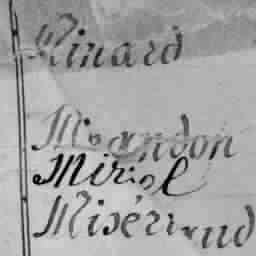 Minard
Mirandon
Miriel
Misérieud